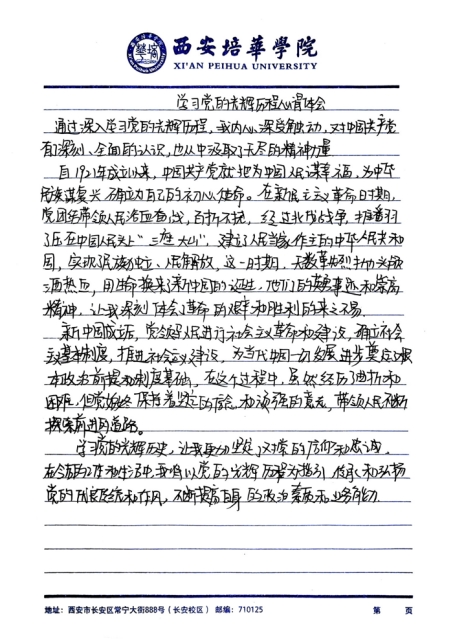 西安培華學院
XI'AN PEIHUA UNIVERSITY
学习党的光辉历程心得体会
通过深入学习党的光辉历程，我内心深受触动，对中国共产党
有深刻、全面的认识，也从中汲取了无尽的精神力量
自1921年成立以来，中国共产党就把为中国人民谋幸福，为中华
民族谋复兴确立为自己的初心使命。在新民主主义革命时期，
党团结带领人民浴血奋战，百折不挠，经过北伐战争，推翻了
了压在中国人民头上"三座大山"，建立了人民当家作主的中华人民共和
国，实现民族独立、人民解放，这一时期，无数革命烈士抛头颅
洒热血，用生命换来了新中国的诞生，他们的英勇事迹和崇高
精神，让我深刻体会革命的艰辛和胜利的来之不易.
新中国成立后，党领导人民进行社会主义革命和建设，确立社会
主义基本制度，推进社会主义建设，为当代中国一切发展进步奠定了根
本政治前提和制度基础，在这个过程中，虽然经历了曲折和
困难，但党始终保持着坚定的信念和顽强的意志，带领人民不断
探索前进的道路。
学习党的光辉历史，让我更加坚定了对党的信仰和忠诚，
在今后的工作和生活中，我将以党的光辉历程为指引，传承和弘扬
党的优良传统和作风，不断提高自身的政治素质和业务能力.
地址：西安市长安区常宁大街888号（长安校区） 邮编：710125 第 页